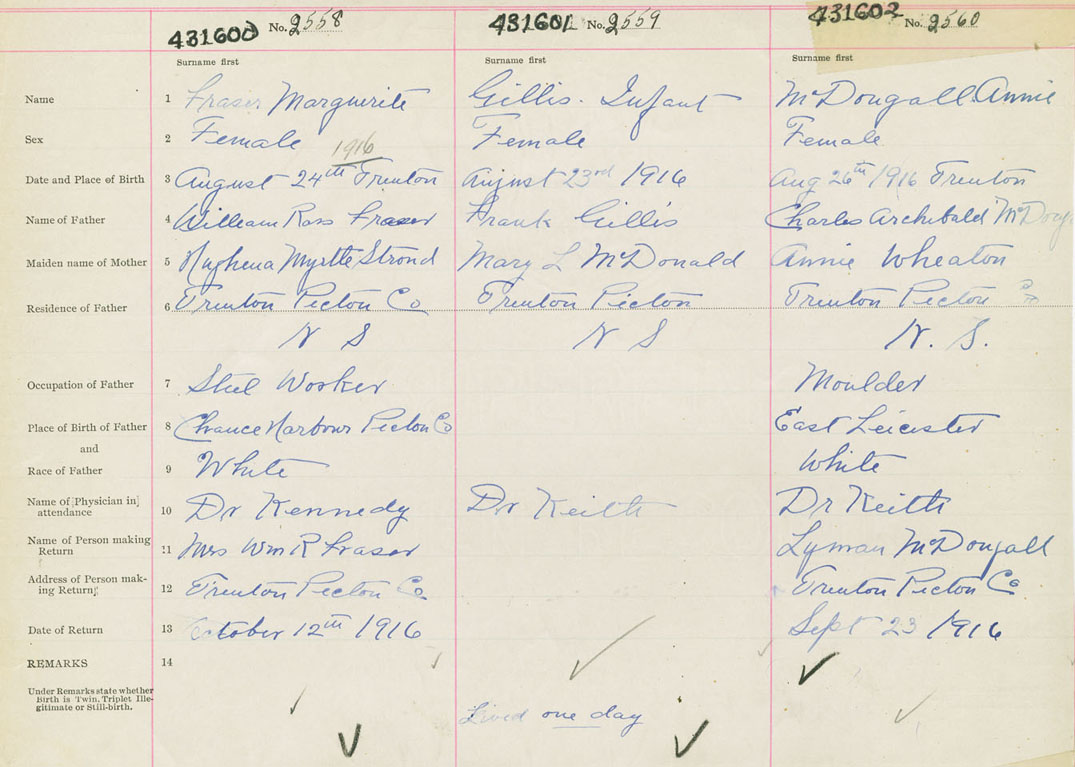 431600 No. 2558 431601 No. 2559 431602 No. 2560
Surname first Surname first Surname first
Name 1 Fraser Marguerite Gillis. Infant McDougall Annie
Sex 2 Female Female Female
1916
Date and Place of Birth 3 August 24th Trenton August 23rd 1916 Aug 26th 1916 Trenton
Name of Father 4 William Ross Fraser Frank Gillis Charles Archibald McDoug
Maiden name of Mother 5 Myrtle Mary L McDonald Annie Wheaton
Residence of Father 6 Trenton Pictou Co Trenton Pictou Trenton Pictou Co
N S N S N. S.
Occupation of Father 7 Steel Worker Moulder
Place of Birth of Father 8 Chance Harbour Pictou Co East Leicester
and
Race of Father 9 White White
Name of Physician in
attendance 10 Dr Kennedy Dr Keith Dr Keith
Name of Person making
Return 11 Mrs Wm R Fraser Lyman McDougall
Address of Person mak-
ing Return 12 Trenton Pictou Co Trenton Pictou Co
Date of Return 13 October 12th 1916 Sept 23 1916
REMARKS 14
Under Remarks state whether
Birth is Twin, Triplet Ille-
gitimate or Still-birth.
Lived one day